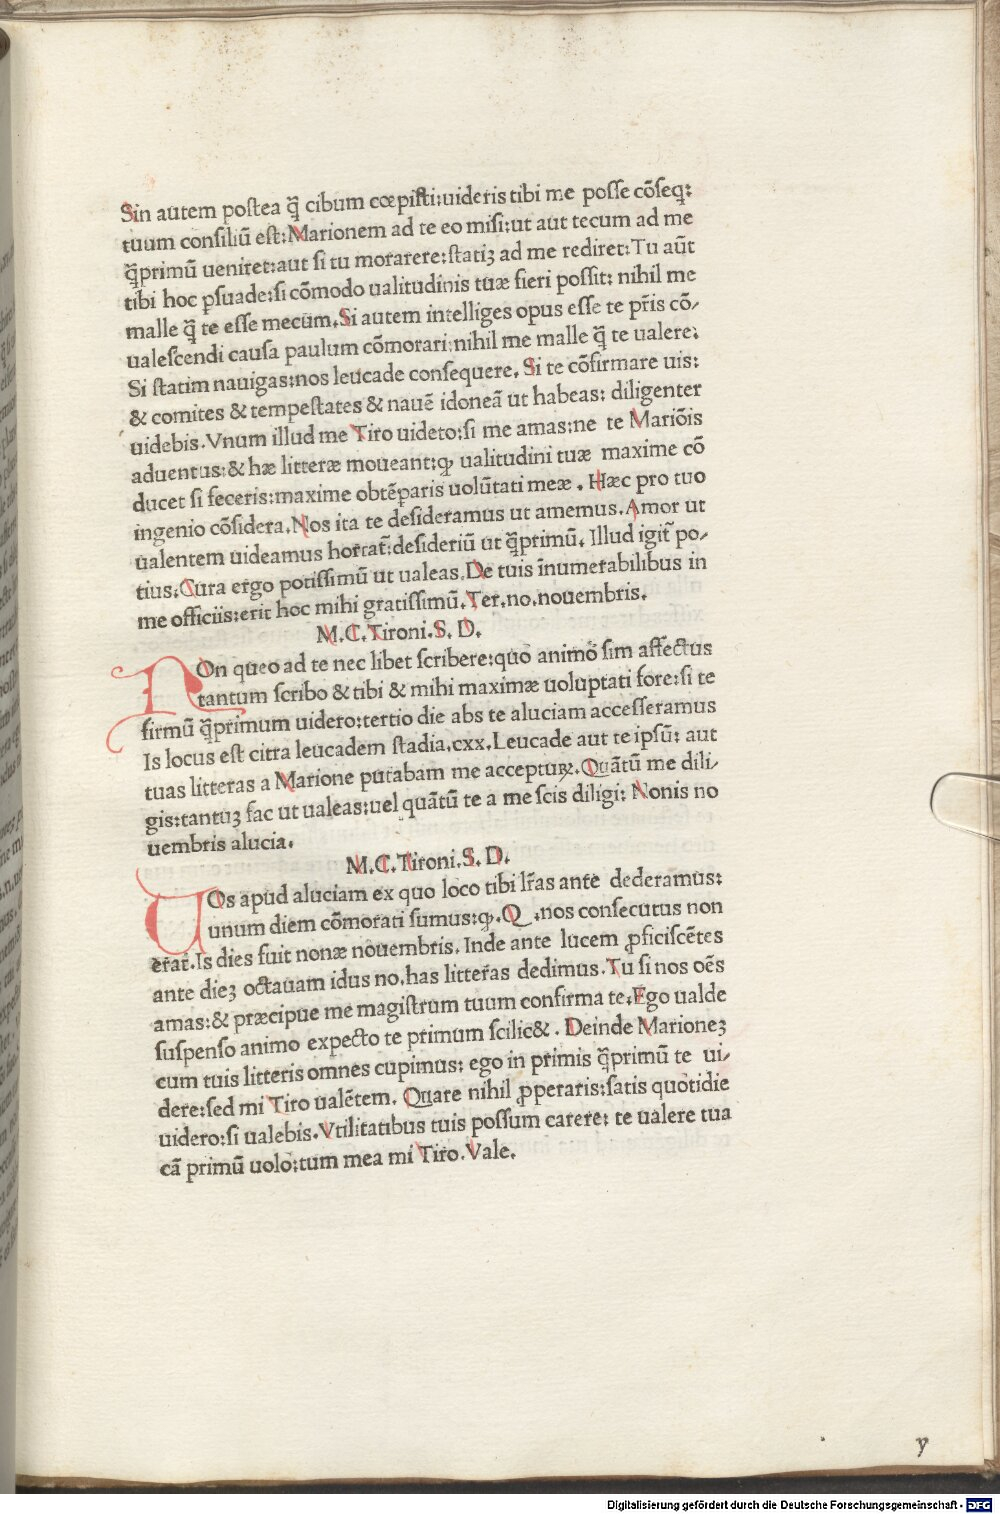 Sin autem postea q̃ cibum cœpisti:uideris tibi me posse cõseq;
tuum consiliũ est:Marionem ad te eo misi:ut aut tecum ad me
q̃primũ ueniret:aut si tu morarere:statiʒ ad me rediret:Tu aũt
tibi hoc ꝑsuade:si cõmodo ualitudinis tuæ fieri possit: nihil me
malle q̃ te esse mecum.Si autem intelliges opus esse te pr̃is cõ-
ualescendi causa paulum cõmorari:nihil me malle q̃ te ualere:
Si statim nauigas:nos leucade consequere. Si te cõfirmare uis:
& comites & tempestates & nauẽ idoneã ut habeas: diligenter
uidebis.Vnum illud me Tiro uideto:si me amas:ne te Mariõis
aduentus:& hæ litteræ moueant:ꝙ ualitudini tuæ maxime cõ
ducet si feceris:maxime obtẽparis uolũtati meæ . Hæc pro tuo
ingenio cõsidera.Nos ita te desideramus ut amemus.Amor ut
ualentem uideamus hortat̃:desideriũ ut q̃primũ. Illud igit̃ po-
tius.Cura ergo potissimũ ut ualeas.De tuis ĩnumerabilibus in
me officiis:erit hoc mihi gratissimũ.Ter.no.nouembris.
M.C.Tironi.S. D.
NOn queo ad te nec libet scribere:quo animo sim affectus
tantum scribo & tibi & mihi maximæ uoluptati fore:si te
firmũ q̃primum uidero:tertio die abs te aluciam accesseramus
Is locus est citra leucadem stadia.cxx.Leucade aut te ipsũ: aut
tuas litteras a Marione putabam me acceptuꝝ.Quãtũ me dili-
gis:tantuʒ fac ut ualeas:uel quãtũ te a me scis diligi: Nonis no
uembris alucia.
M.C.Tironi.S. D.
VOs apud aluciam ex quo loco tibi lr̃as ante dederamus:
unum diem cõmorati sumus:ꝙ.Q .nos consecutus non
erat.Is dies fuit nonæ nouembris. Inde ante lucem ꝓficiscẽtes
ante dieʒ octauam idus no.has litteras dedimus.Tu si nos oẽs
amas:& præcipue me magistrum tuum confirma te.Ego ualde
suspenso animo expecto te primum scilic& . Deinde Marioneʒ
cum tuis litteris omnes cupimus: ego in primis q̃primũ te ui-
dere:sed mi Tiro ualẽtem. Quare nihil ꝓperaris:satis quotidie
uidero:si ualebis.Vtilitatibus tuis possum carere: te ualere tua
cã primũ uolo:tum mea mi Tiro.Vale.
y
Digitalisierung gefördert durch die Deutsche Forschungsgemeinschaft - DFG